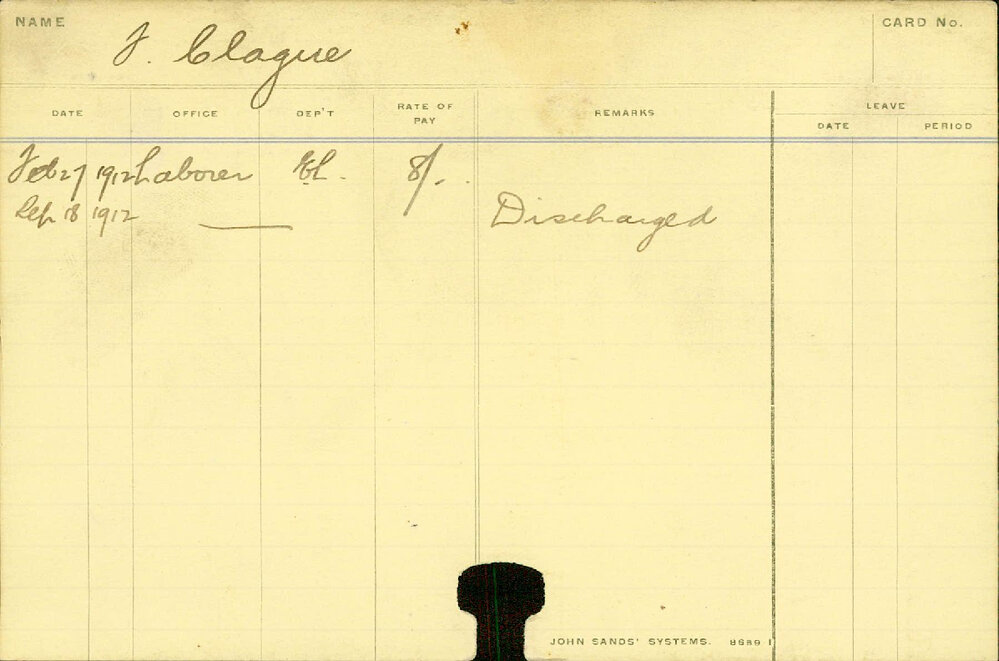 NAME
CARD No.
J. Clague
DATE OFFICE DEP'T RATE OF PAY REMARKS LEAVE
DATE PERIOD
Feb 27 1912 Laborer 8/-
Sep 18 1912 —— Discharged
JOHN SANDS' SYSTEMS. 8689 1